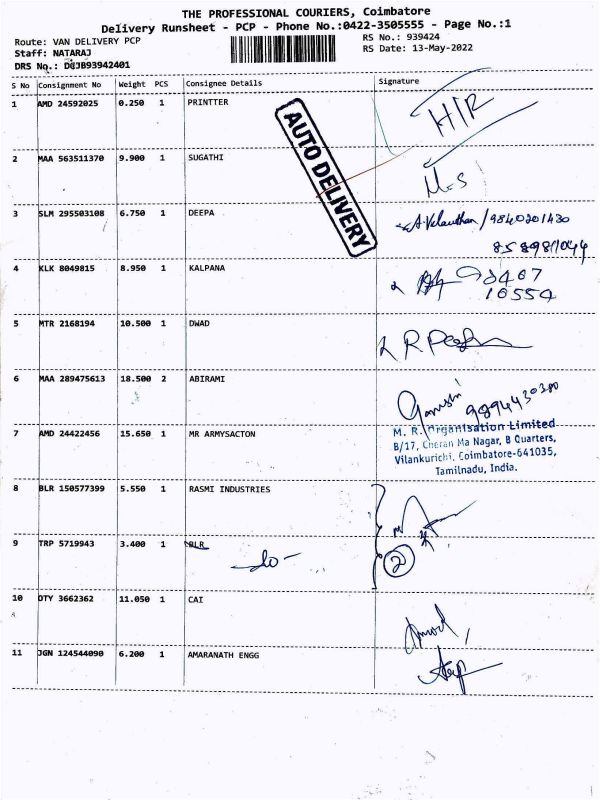 THE PROFESSIONAL COURIERS, Coimbatore
Delivery Runsheet - PCP - Phone No.:0422-3505555 - Page No.:1
Route: VAN DELIVERY PCP RS No.: 939424
Staff: NATARAJ RS Date: 13-May-2022
DRS No.: DCJB93942401
S No Consignment No Weight PCS Consignee Details Signature
1 AMD 24592025 0.250 1 PRINTTER H/R
AUTO DELIVERY
2 MAA 563511370 9.900 1 SUGATHI M.S
3 SLM 295503108 6.750 1 DEEPA A.Velauthan/9840201430
8589811044
4 KLK 8049815 8.950 1 KALPANA 98407
10554
5 MTR 2168194 10.500 1 DWAD R
6 MAA 289475613 18.500 2 ABIRAMI Ganesh 9894430380
7 AMD 24422456 15.650 1 MR ARMYSACTON M. R. Organisation Limited
B/17, Cheran Ma Nagar, B Quarters,
Vilankurichi, Coimbatore-641035,
Tamilnadu, India.
8 BLR 150577399 5.550 1 RASMI INDUSTRIES
9 TRP 5719943 3.400 1 BLR 2
-do-
10 DTY 3662362 11.050 1 CAI
11 JGN 124544090 6.200 1 AMARANATH ENGG